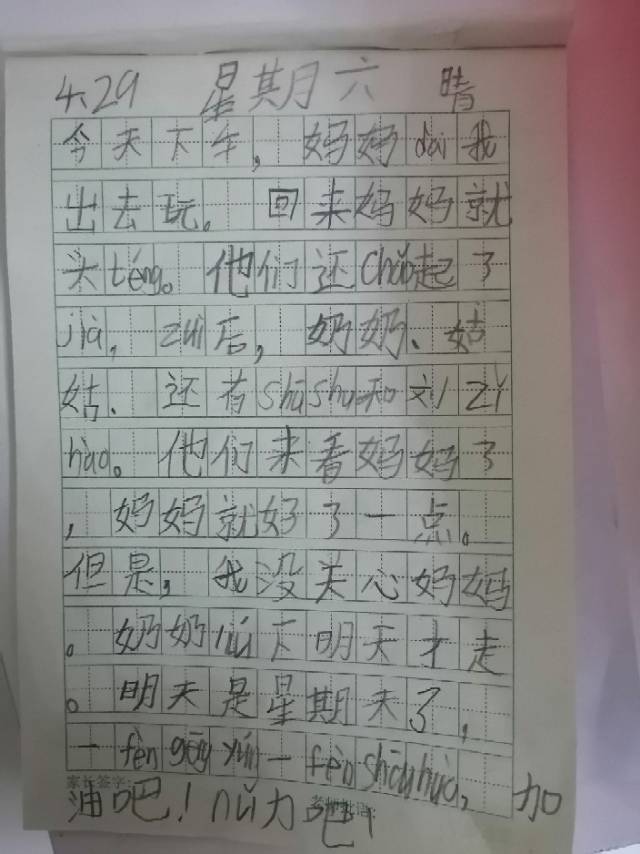 4.29 星期六 晴
今天下午，妈妈dài我
出去玩。回来妈妈就
头téng。他们还chǎo起了
jià，zuì后，奶奶、姑
姑、还有shūshu和刘zǐ
hào。他们来看妈妈了
，妈妈就好了一点。
但是，我没关心妈妈
。奶奶liú下明天才走
。明天是星期天了，
一fèn gēng yún一fèn shōu huò，加
家长签字：
油吧！nǔ力吧！